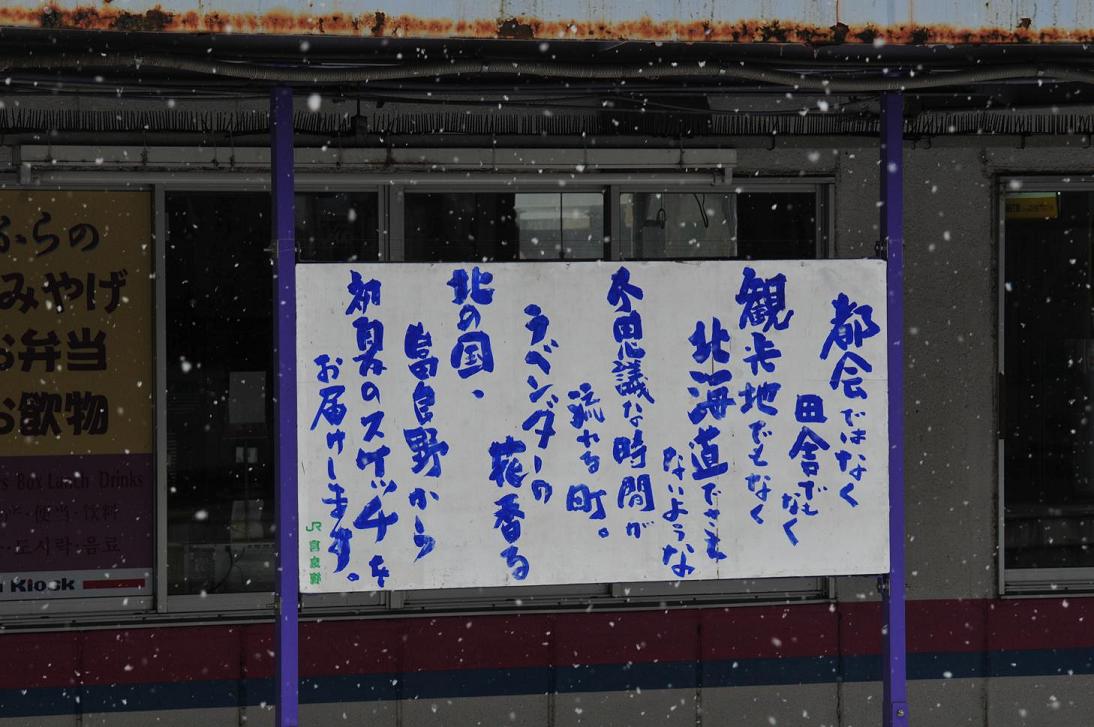 都会ではなく
田舎でもなく
観光地でもなく
北海道でさえも
ないような
不思議な時間が
流れる町。
ラベンダーの
花香る
北の国、
富良野から
初夏のスケッチを
お届けします。
JR 富良野
ふらの
みやげ
お弁当
お飲物
Box Lunch Drinks
便当·饮料
도시락·음료
Kiosk